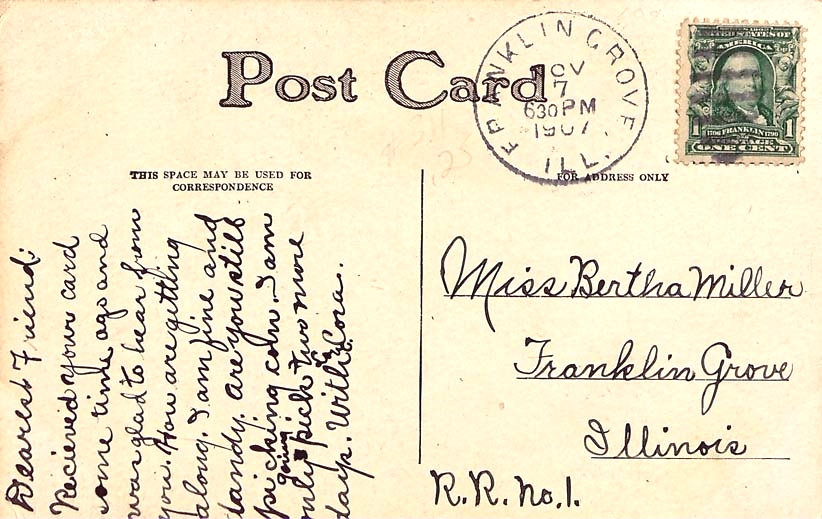 Post Card
FRANKLIN GROVE
NOV
7
630 PM
1907
ILL.
UNITED STATES OF
AMERICA
1 1706 FRANKLIN 1790 1
POSTAGE
ONE CENT
THIS SPACE MAY BE USED FOR
CORRESPONDENCE
FOR ADDRESS ONLY
Dearest Friend:
Recieved your card
some time ago and
was glad to hear from
you. How are getting
along. I am fine and
dandy. Are you still
picking corn. I am
going
only pick two more
days. With Cora.
Miss Bertha Miller
Franklin Grove
Illinois
R.R. No. 1.